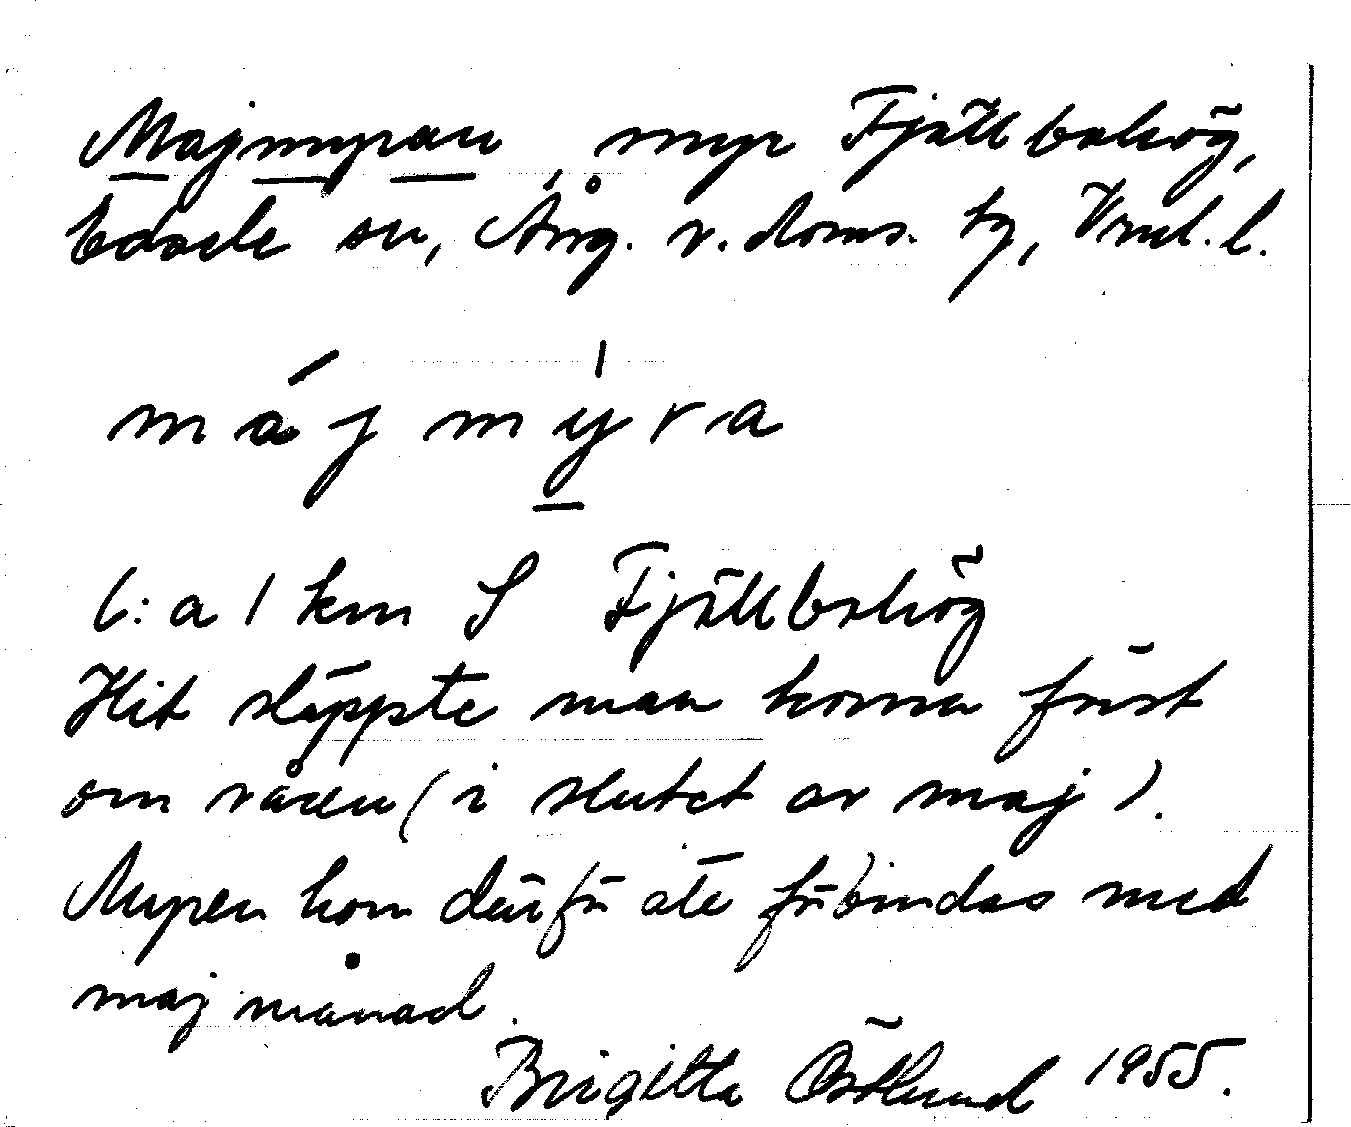 Majmyran, myr Fjällbakhög,
Edsele sn, Ång. v. doms.
májmýra
C:a 1 km S Fjällbakhög
Hit släppte man korna först
om våren (i slutet av maj).
Myren kom därför att förbindas med
maj månad.
Brigitta Östlund 1955.